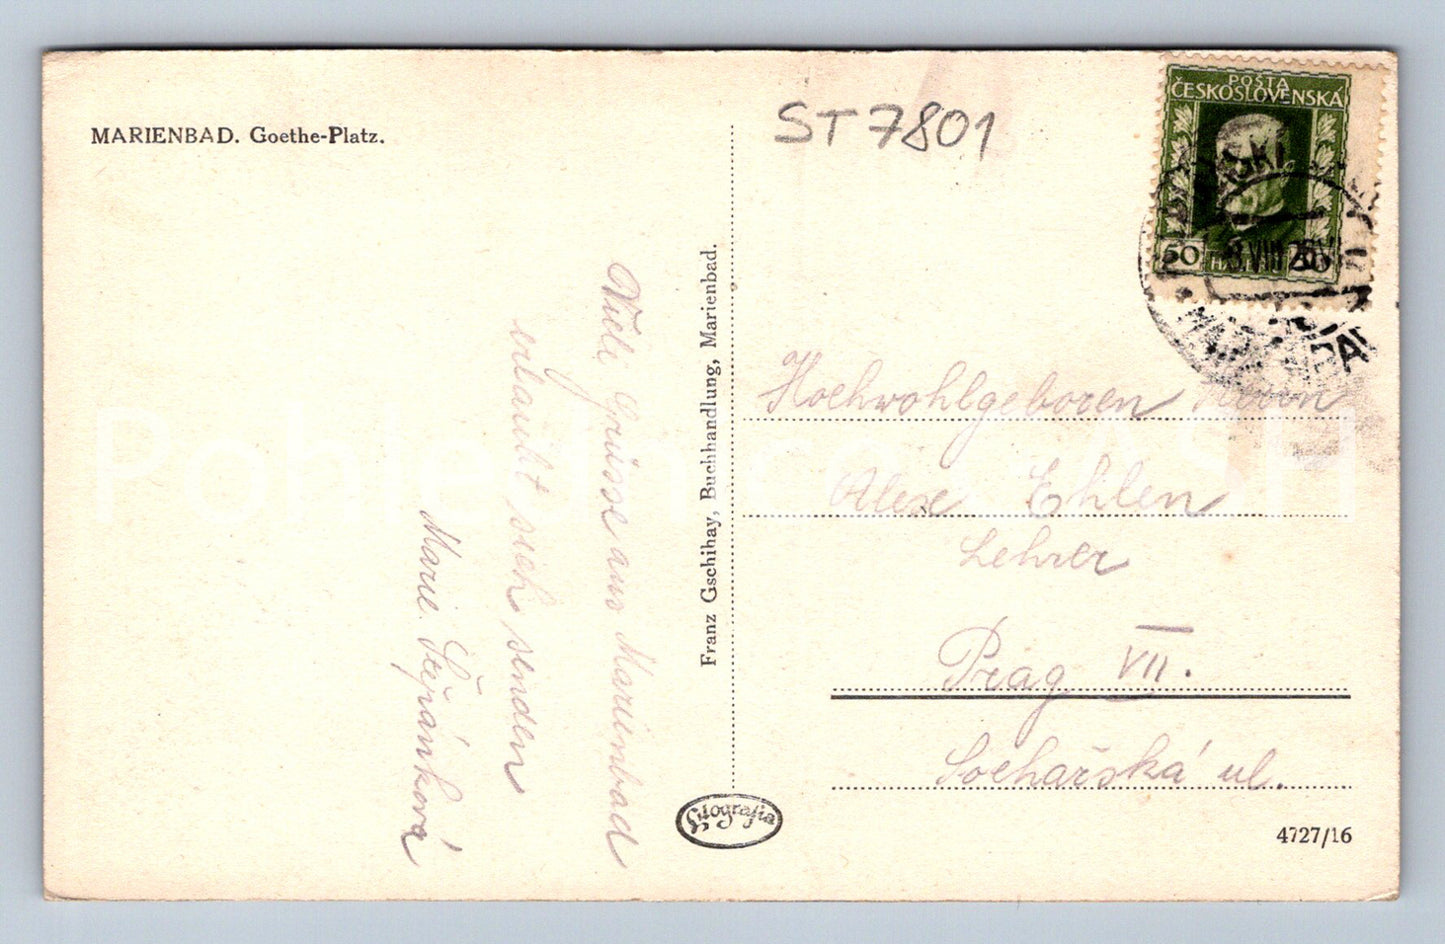 MARIENBAD. Goethe-Platz.
ST 7801
POŠTA
ČESKOSLOVENSKÁ
50
50
VIII 26
Viele Grüsse aus Marienbad
erlaubt sich senden
Marie Štěpánková
Franz Gschihay, Buchhandlung, Marienbad.
Hochwohlgeboren Herrn
Alex Ehlen
Lehrer
Prag VII.
Sochařská ul.
Litografia
4727/16